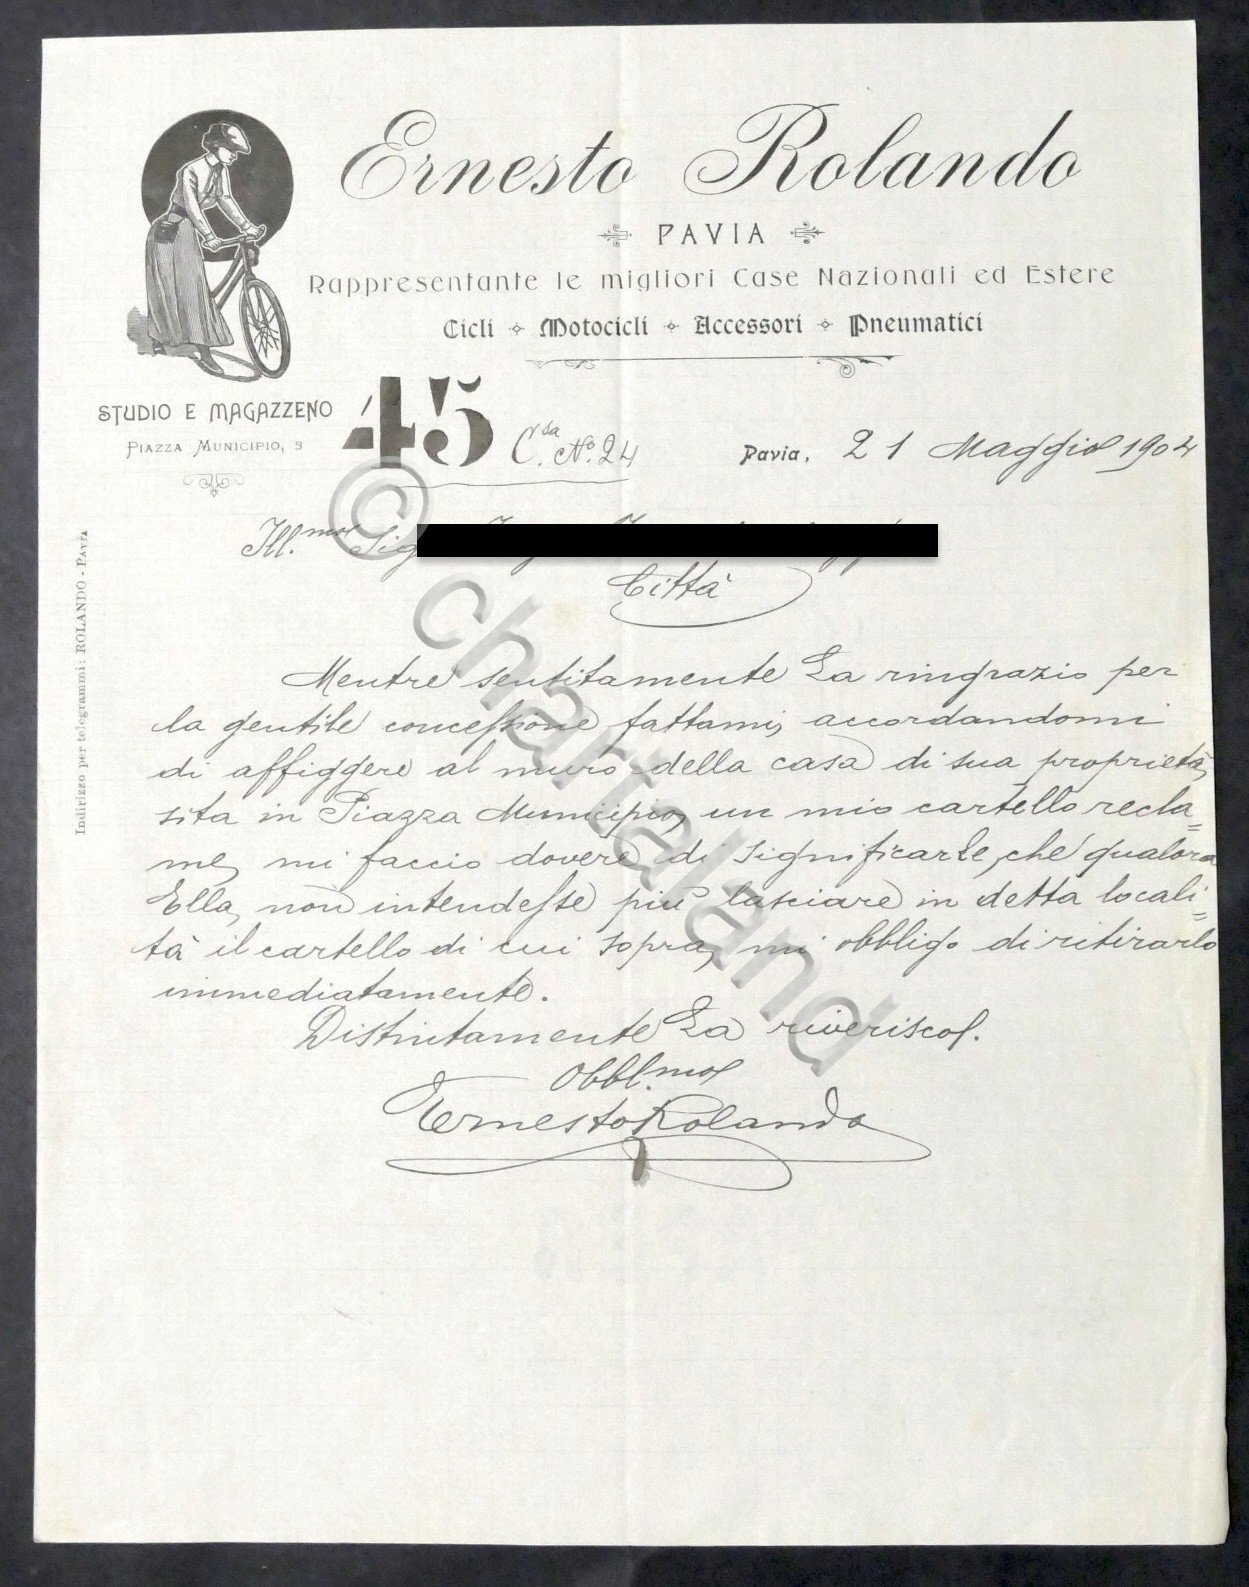 Ernesto Rolando
PAVIA
Rappresentante le migliori Case Nazionali ed Estere
Cicli Motocicli Accessori Pneumatici
STUDIO E MAGAZZENO
PIAZZA MUNICIPIO, 3
45 C.sa No. 24
Pavia, 21 Maggio 1904
Indirizzo per telegrammi: ROLANDO - PAVIA
Ill.mo Sig
Città
Mentre sentitamente La ringrazio per
la gentile concessione fattami, accordandomi
di affiggere al muro della casa di sua proprietà,
sita in Piazza Municipio, un mio cartello recla=
me, mi faccio dovere di significarLe, che qualora
Ella, non intendesse più lasciare in detta locali=
tà il cartello di cui sopra, mi obbligo di ritirarlo
immediatamente.
Distintamente La riverisco.
Obbl.mo
Ernesto Rolando
© chartaland